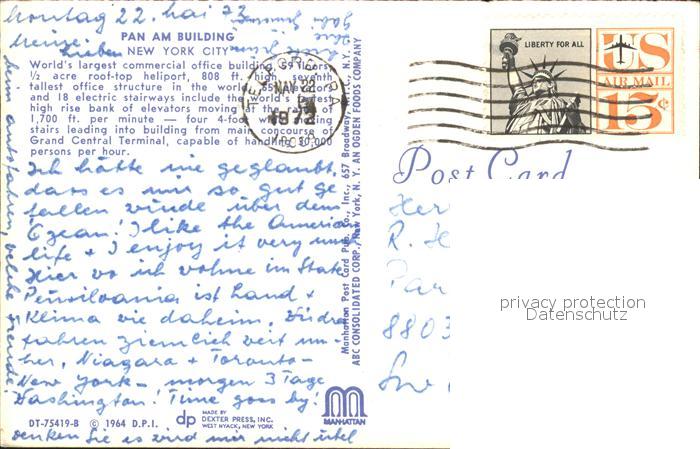 Montag 22. Mai 73
Meine Lieben
PAN AM BUILDING
NEW YORK CITY
World's largest commercial office building, 59 floors,
½ acre roof-top heliport, 808 ft. high, seventh
tallest office structure in the world,
and 18 electric stairways include the world's
high rise bank of elevators moving at the rate of
1,700 ft. per minute — four 4-foot wide moving
stairs leading into building from main concourse of
Grand Central Terminal, capable of handling
persons per hour.
Ich hätte nie geglaubt,
dass es mir so gut ge
fallen würde über dem
Ozean! I like the American
life + I enjoy it very much
Hier wo ich wohne im State
Pensilvania ist Land +
Klima wie daheim. Wir
fahren ziemlich weit um-
her, Niagara + Toronto -
New York - morgen 3 Tage
Washington! Time goes by!
DT-75419-B © 1964 D.P.I.
dp MADE BY
DEXTER PRESS, INC.
WEST NYACK, NEW YORK
MANHATTAN
denken Sie es wird mir nicht übel
beim
welche
Manhattan Post Card Pub. Co., Inc., 657 Broadway, N.Y.
ABC CONSOLIDATED CORP., New York, N. Y. AN OGDEN FOODS COMPANY
MAY 22
LIBERTY FOR ALL
US
AIR MAIL
15¢
Post Card
Her
R. H
8803
privacy protection
Datenschutz